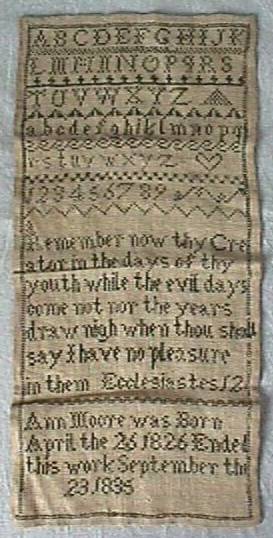 A B C D E F G H I J K
L M N O P Q R S
T U V W X Y Z
a b c d e f g h i k l m n o p q
r s t u v w x y z
1 2 3 4 5 6 7 8 9
Remember now thy Cre
ator in the days of thy
youth while the evil days
come not nor the years
draw nigh when thou shall
say I have no pleasure
in them Ecclesiastes 12
Ann Moore was Born
April the 26 1826 Ended
this work September the
23 1835